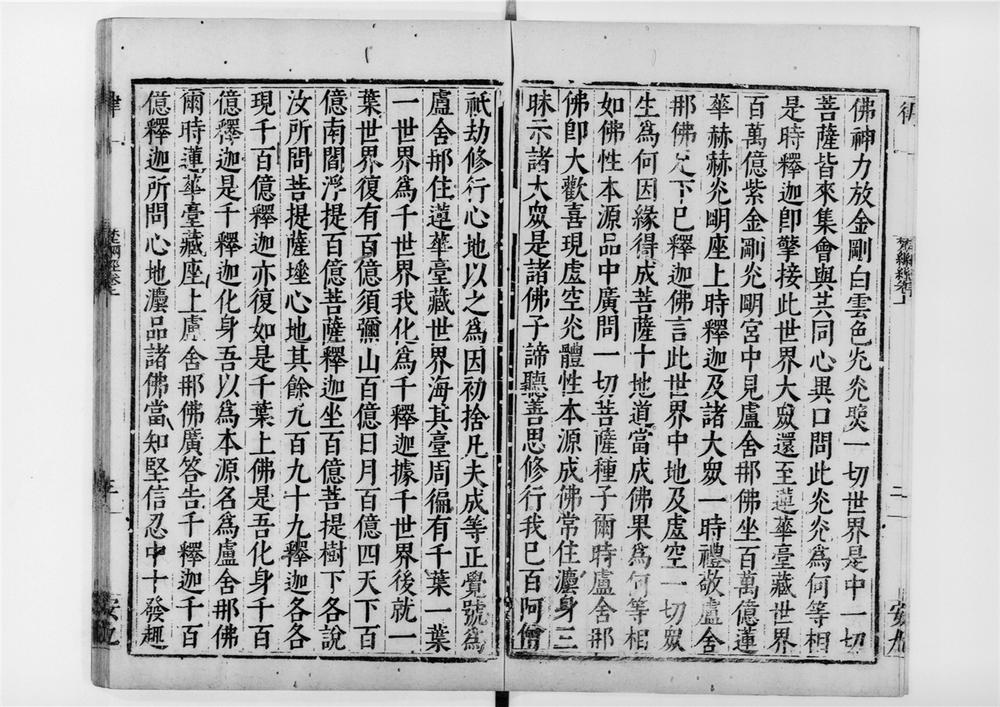 佛神力放金剛白雲色光光熨一切世界是中一切
菩薩皆來集會與共同心異口問此光光為何等相
是時釋迦卽擎接此世界大眾還至蓮華臺藏世界
百萬億紫金剛光明宮中見盧舍那佛坐百萬億蓮
華赫赫光明座上時釋迦及諸大眾一時禮敬盧舍
那佛足下已釋迦佛言此世界中地及虛空一切眾
生為何因緣得成菩薩十地道當成佛果為何等相
如佛性本源品中廣問一切菩薩種子爾時盧舍那
佛卽大歡喜現虛空光體性本源成佛常住灋身三
昧示諸大眾是諸佛子諦聽善思修行我已百阿僧
祇劫修行心地以之為因初捨凡夫成等正覺號為
盧舍那住蓮華臺藏世界海其臺周徧有千葉一葉
一世界為千世界我化為千釋迦據千世界後就一
葉世界復有百億須彌山百億日月百億四天下百
億南閻浮提百億菩薩釋迦坐百億菩提樹下各說
汝所問菩提薩埵心地其餘九百九十九釋迦各各
現千百億釋迦亦復如是千葉上佛是吾化身千百
億釋迦是千釋迦化身吾以為本源名為盧舍那佛
爾時蓮華臺藏座上盧舍那佛廣答告千釋迦千百
億釋迦所問心地灋品諸佛當知堅信忍中十發趣
律
梵網經卷上
三